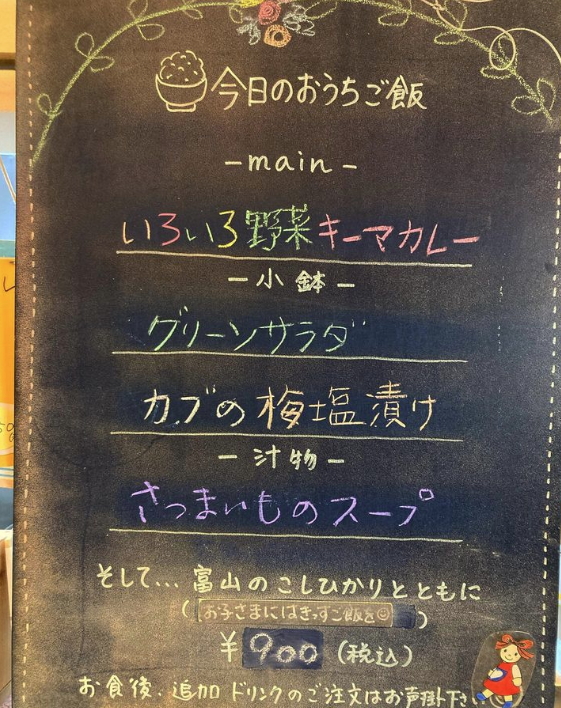 今日のおうちご飯
-main-
いろいろ野菜キーマカレー
-小鉢-
グリーンサラダ
カブの梅塩漬け
-汁物-
さつまいものスープ
そして...富山のこしひかりとともに
(お子さまにはきっずご飯を☺)
¥900(税込)
お食後、追加ドリンクのご注文はお声掛け下さい